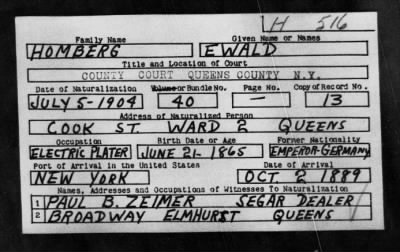 H 516
Family Name Given Name or Names
HOMBERG EWALD
Title and Location of Court
COUNTY COURT QUEENS COUNTY N.Y.
Date of Naturalization Volume or Bundle No. Page No. Copy of Record No.
JULY 5-1904 40 — 13
Address of Naturalized Person
COOK ST. WARD 2 QUEENS
Occupation Birth Date or Age Former Nationality
ELECTRIC PLATER JUNE 21-1865 EMPEROR-GERMANY
Port of Arrival in the United States Date of Arrival
NEW YORK OCT. 2 1889
Names, Addresses and Occupations of Witnesses To Naturalization
1 PAUL B. ZEIMER SEGAR DEALER
2 BROADWAY ELMHURST QUEENS